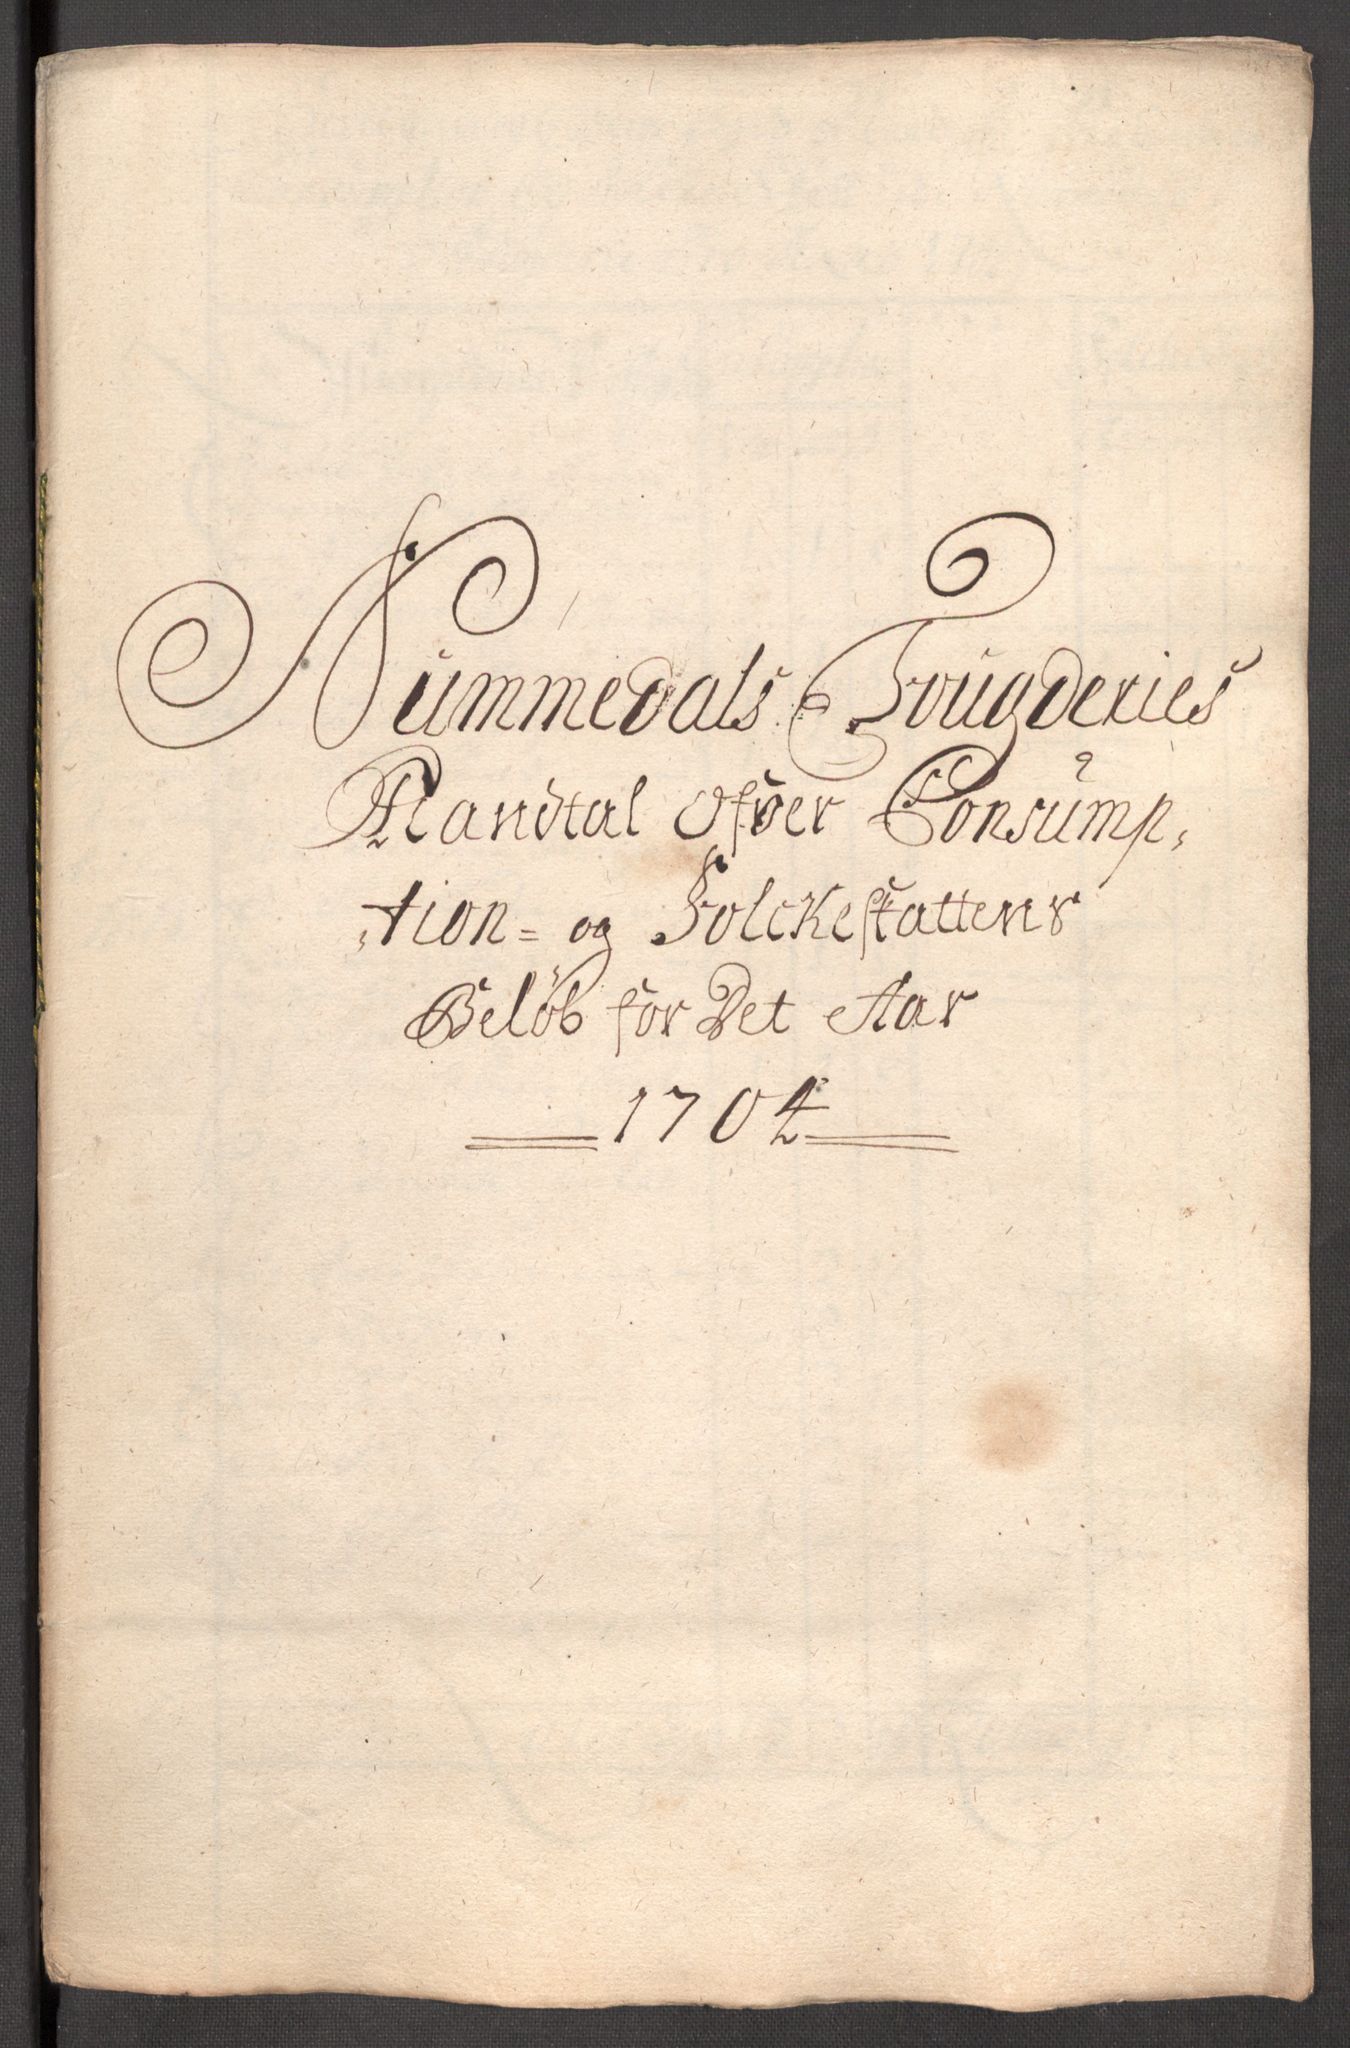 Nummedals Fougderies
Mandtal Ofver Consump,
,tion= og Folckeskattens
Beløb for Det Aar
1704